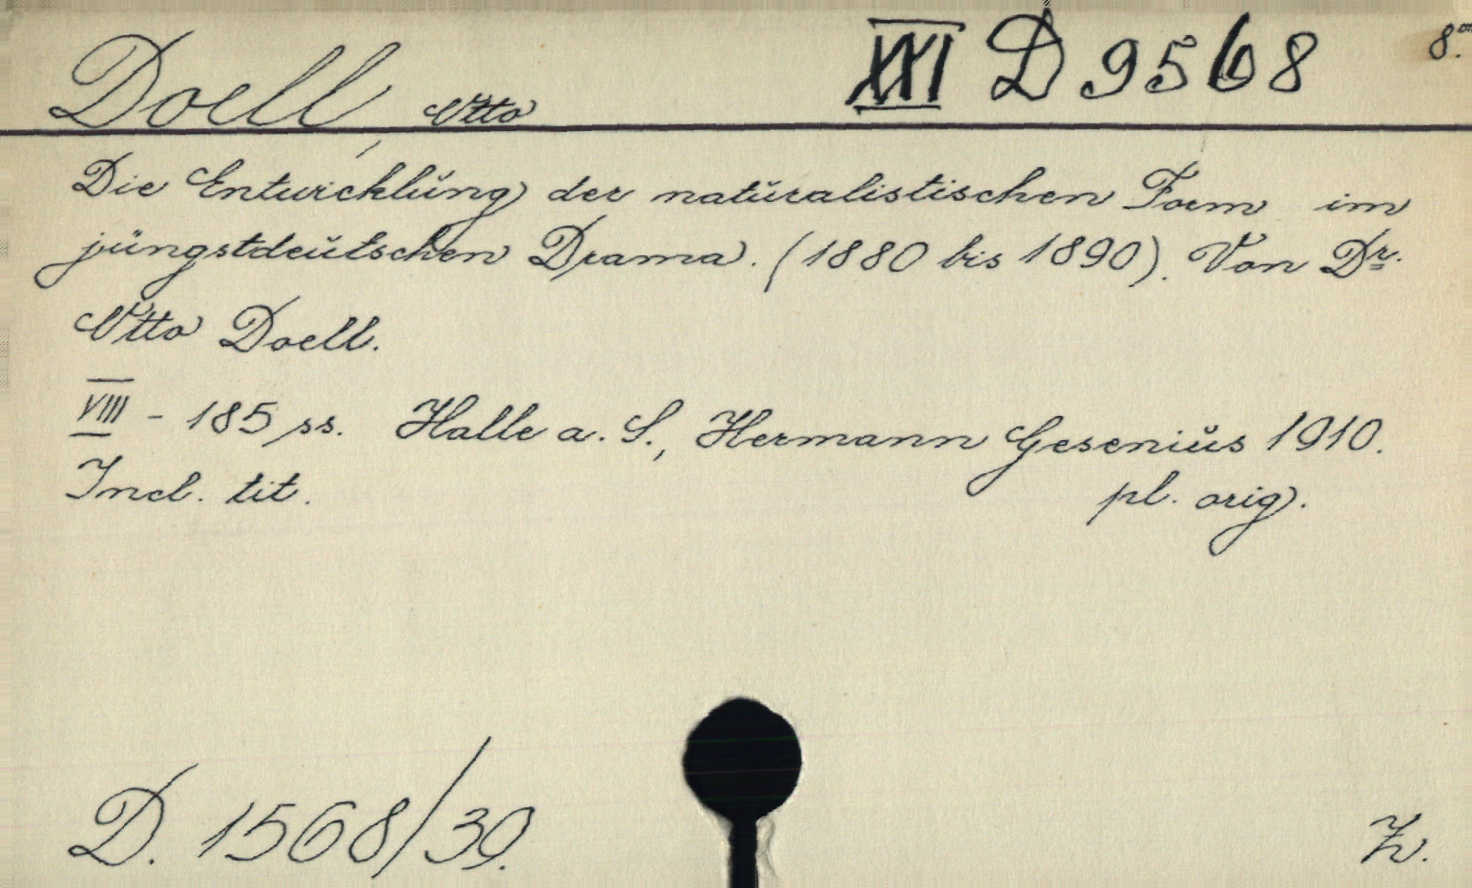 Doell, Otto XXI D 9568 8.
Die Entwicklung der naturalistischen Form im
jüngstdeutschen Drama. (1880 bis 1890). Von Dr.
Otto Doell.
VIII - 185 ss. Halle a. S., Hermann Gesenius 1910.
Incl. tit. pl. orig.
D. 1568/30.